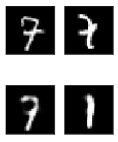 7 7
7 1